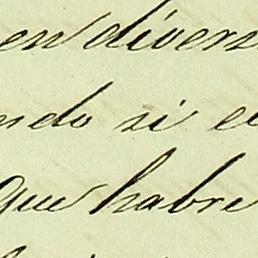 en divers
ndo si e
que habre